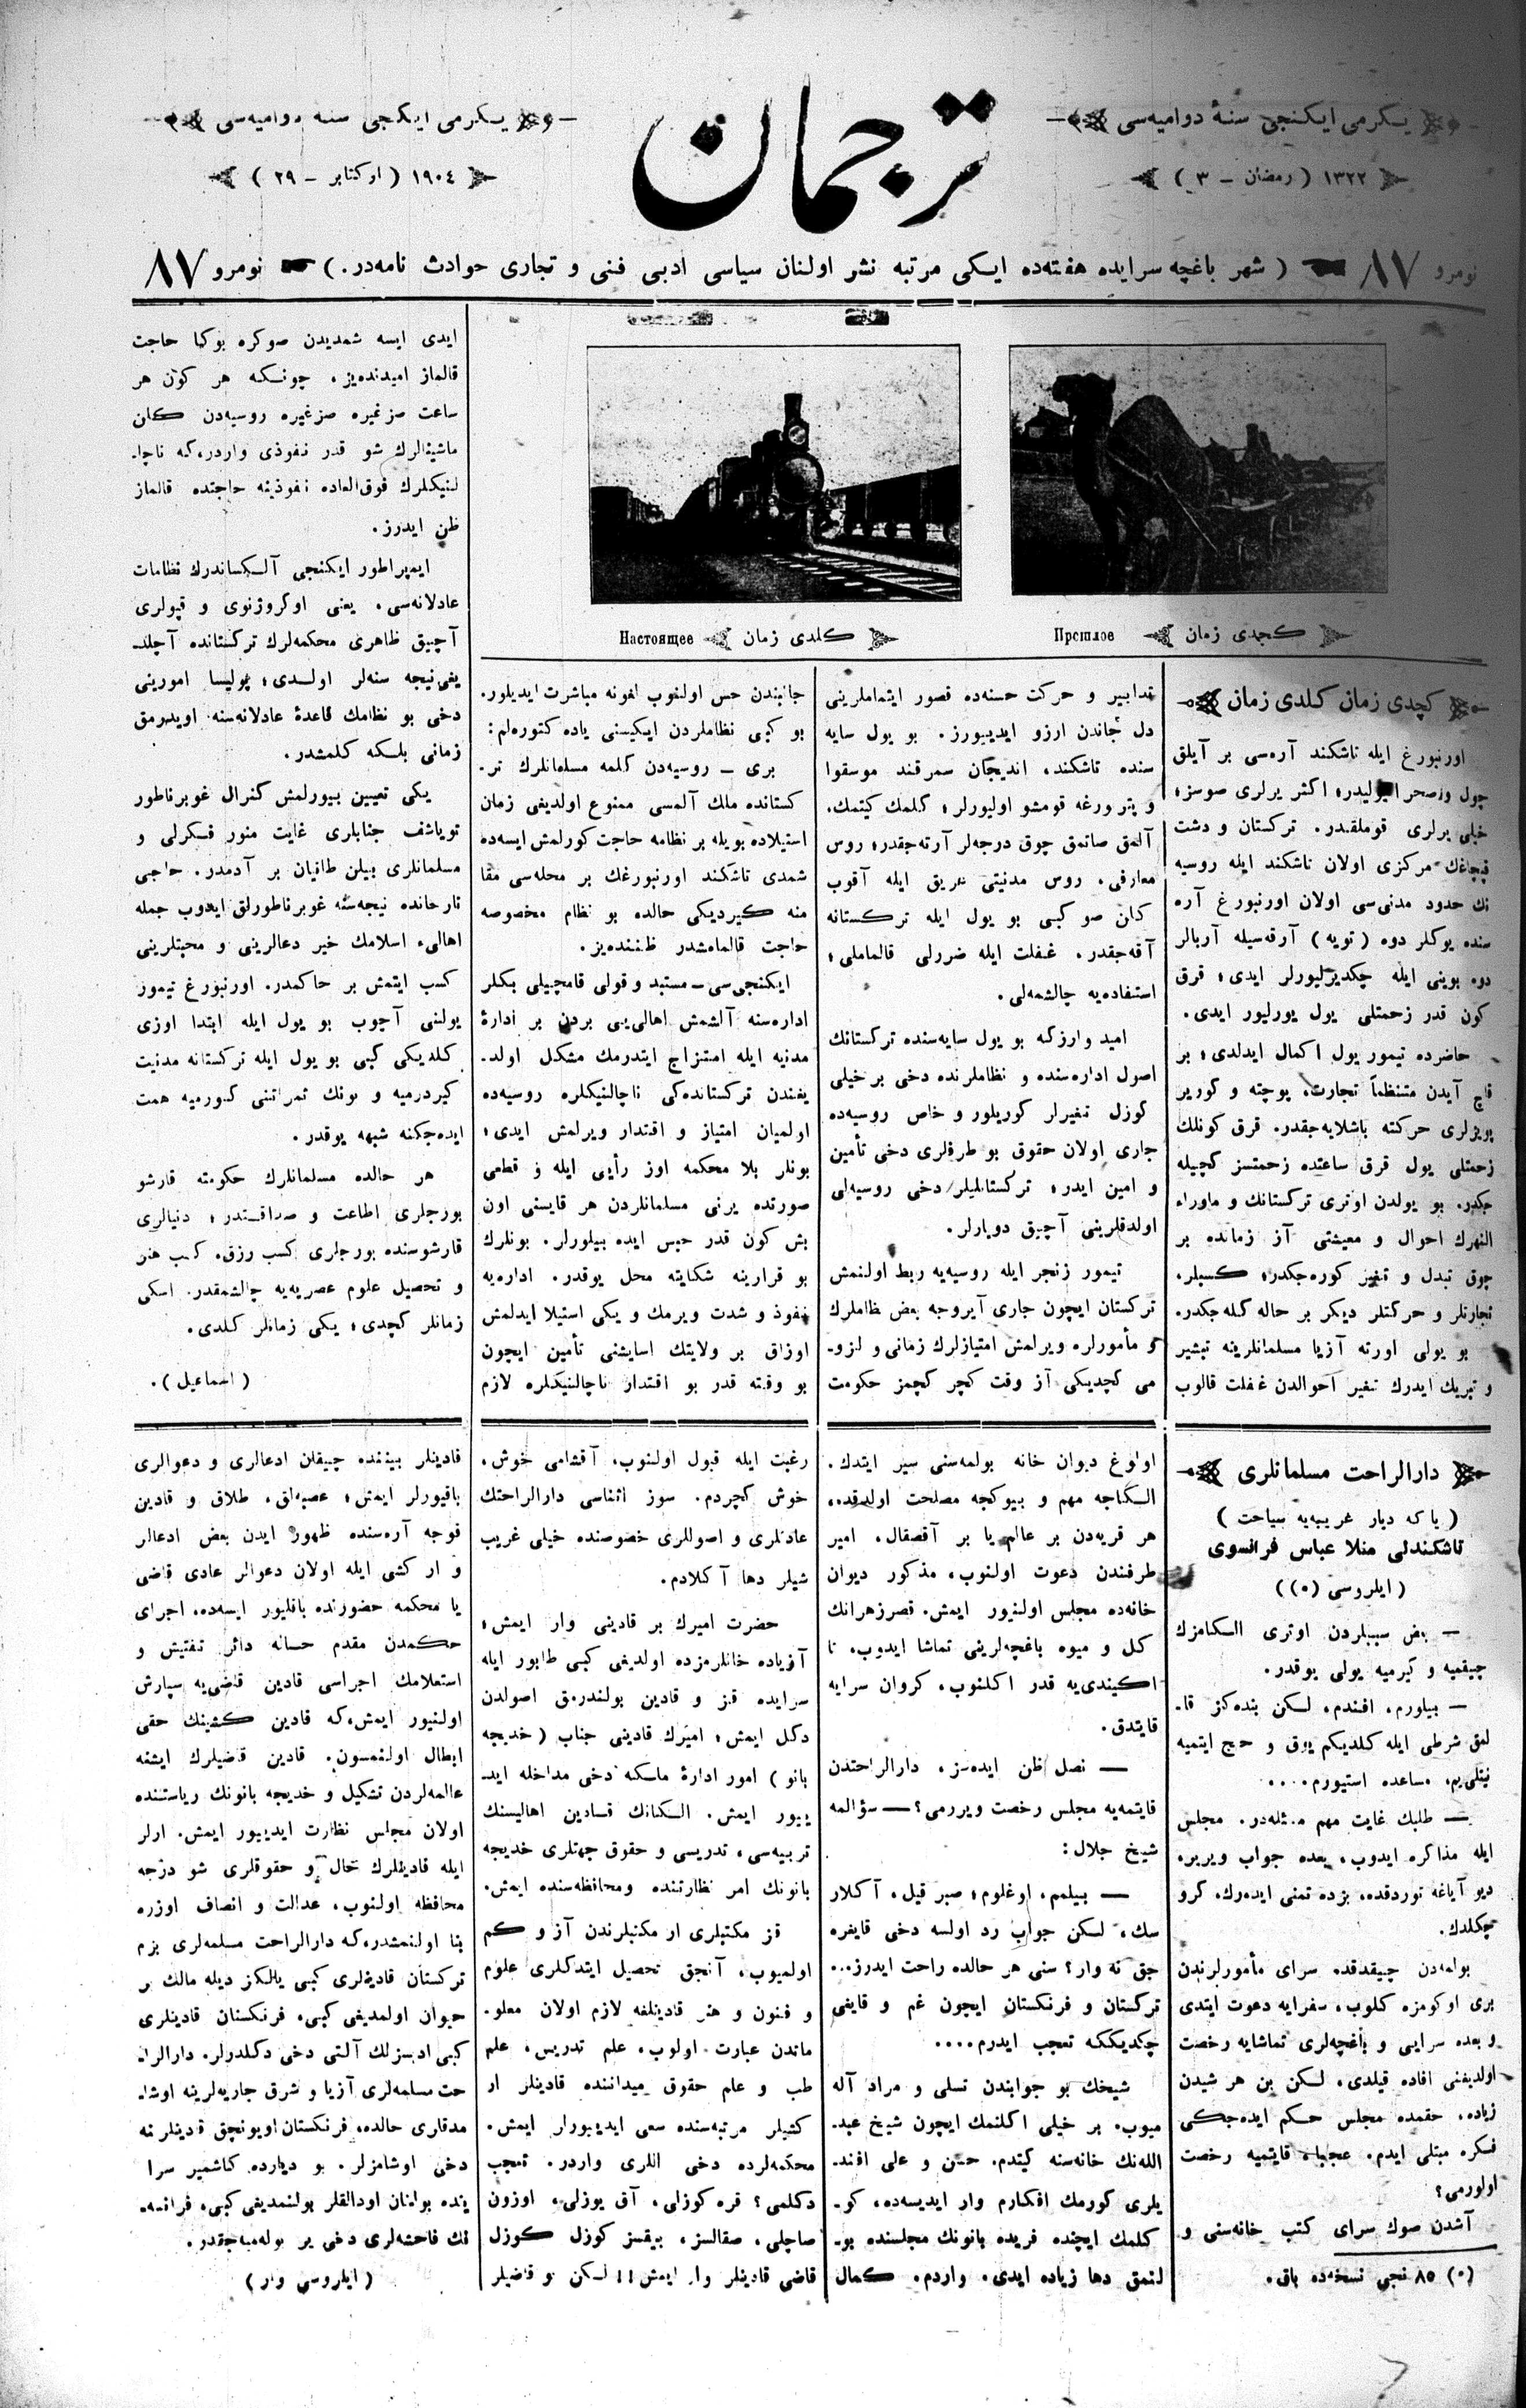 يكرمى ايكنجى سنۀ دواميه‌سى
١٣٢٢ ( رمضان – ٣ )
ترجمان
يكرمى ايكنجى سنه دواميه‌سى
١٩٠٤ ( اوكتابر – ٢٩ )
نومرو ٨٧ ( شهر باغچه سرايده هفته‌ده ايكى مرتبه نشر اولنان سياسى ادبى فنى و تجارى حوادث نامه‌در. ) نومرو ٨٧
كچدى زمان Прошлое
كلدى زمان Настоящее
كچدى زمان كلدى زمان
اورنبورغ ايله تاشكند آره‌سى بر آيلق
خيلى يرلرى قوملقدر. تركستان و دشت
قپچاغك مركزى اولان تاشكند ايله روسيه
نك حدود مدنى‌سى اولان اورنبورغ آره
سنده يوكلر دوه ( تويه ) آرقه‌سيله آربالر
دوه بوينى ايله چكديرليورلر ايدى؛ قرق
كون قدر زحمتلى يول يورليور ايدى.
حاضرده تيمور يول اكمال ايدلدى؛ بر
قاچ آيدن منتظماً تجارت، پوچته و كورير
پويزلرى حركته باشلايه‌جقدر. قرق كونلك
زحمتلى يول قرق ساعتده زحمتسز كچيله
جكدر. بو يولدن اوترى تركستانك و ماوراء
النهرك احوال و معيشتى آز زمانده بر
چوق تبدل و تغير كوره‌جكدر؛ كسبلر،
تجارتلر و حركتلر ديكر بر حاله كله‌جكدر.
بو يولى اورته آزيا مسلمانلرينه تبشير
و تبريك ايدرك تغير احوالدن غفلت قالوب
تدابير و حركت حسنه‌ده قصور ايتماملرينى
دل جاندن ارزو ايدييورز. بو يول سايه
سنده تاشكند، انديجان سمرقند موسقوا
و پتربورغه قومشو اوليورلر؛ كلمك كيتمك،
آلمق صاتمق چوق درجه‌لر آرته‌جقدر؛ روس
معارفى، روس مدنيتى طريق ايله آقوب
كلن صو كبى بو يول ايله تركستانه
آقه‌جقدر. غفلت ايله ضررلى قالماملى؛
استفاده‌يه چالشمه‌لى.
اميد وارزكه بو يول سايه‌سنده تركستانك
اصول اداره‌سنده و نظاملرنده دخى بر خيلى
كوزل تغيرلر كوريلور و خاص روسيه‌ده
جارى اولان حقوق بو طرفلرى دخى تأمين
و امين ايدر؛ تركستانليلر دخى روسيه‌لى
اولدقلرينى آچيق دويارلر.
تيمور زنجر ايله روسيه‌يه ربط اولنمش
تركستان ايچون جارى آيروجه بعض نظاملرك
و مأمورلره ويرلمش امتيازلرك زمانى و لزو–
مى كچديكى آز وقت كچر كچمز حكومت
جانبندن حس اولنوب لغونه مباشرت ايديلور.
بو كبى نظاملردن ايكيسنى ياده كتوره‌لم:
برى – روسيه‌دن كلمه مسلمانلرك تر–
كستانده ملك آلمسى ممنوع اولديغى زمان
استيلاده بويله بر نظامه حاجت كورلمش ايسه‌ده
شمدى تاشكند اورنبورغك بر محله‌سى مقا
منه كيرديكى حالده بو نظام مخصوصه
حاجت قالمامشدر ظننده‌يز.
ايكنجى‌سى – مستبد و قولى قامچيلى بكلر
اداره‌سنه آلشمش اهالى‌يى بردن بر ادارۀ
مدنيه ايله امتزاج ايتدرمك مشكل اولد–
يغندن تركستانده‌كى ناچالنيكلره روسيه‌ده
اولميان امتياز و اقتدار ويرلمش ايدى؛
بونلر بلا محكمه اوز رأيى ايله و قطعى
صورتده يرلى مسلمانلردن هر قايسنى اون
بش كون قدر حبس ايده بيلورلر. بونلرك
بو قرارينه شكايته محل يوقدر. اداره‌يه
نفوذ و شدت ويرمك و يكى استيلا ايدلمش
اوزاق بر ولايتك اسايشنى تأمين ايچون
بو وقته قدر بو اقتدار ناچالنيكلره لازم
ايدى ايسه شمديدن صوكره بوكا حاجت
قالماز اميدنده‌يز، چونكه هر كون هر
ساعت صزغيره صزغيره روسيه‌دن كلن
ماشينالرك شو قدر نفوذى واردركه ناچا–
لنيكلرك فوق‌العاده نفوذينه حاجتده قالماز
ظن ايدرز.
ايمپراطور ايكنجى آلكساندرك نظامات
عادلانه‌سى، يعنى اوكروژنوى و قپولرى
آچيق ظاهرى محكمه‌لرك تركستانده آچلد–
يغى نيجه سنه‌لر اولدى؛ پوليسا امورينى
دخى بو نظامك قاعدۀ عادلانه‌سنه اويدرمق
زمانى بلكه كلمشدر.
يكى تعيين بيورلمش كنرال غوبرناطور
توياشف جنابلرى غايت منور فكرلى و
مسلمانلرى بيلن طانيان بر آدمدر. حاجى
تارخانده نيجه‌سنه غوبرناطورلق ايدوب جمله
اهالىء اسلامك خير دعالرينى و محبتلرينى
كسب ايتمش بر حاكمدر. اورنبورغ تيمور
يولنى آچوب بو يول ايله ابتدا اوزى
كلديكى كبى بو يول ايله تركستانه مدنيت
كيردرميه و بونك ثمراتنى كورميه همت
ايده‌جكنه شبهه يوقدر.
هر حالده مسلمانلرك حكومته قارشو
بورجلرى اطاعت و صداقتدر؛ دنيالرى
قارشوسنده بورجلرى كسب رزق، كسب هنر
و تحصيل علوم عصريه‌يه چالشمقدر. اسكى
زمانلر كچدى؛ يكى زمانلر كلدى.
( اسماعيل ).
دارالراحت مسلمانلرى
( ياكه ديار غريبه‌يه سياحت )
تاشكندلى منلا عباس فرانسوى
( ايلروسى (*) )
— بعض سببلردن اوترى الكامزك
چيقميه و كيرميه يولى يوقدر.
— بيلورم، افندم، لكن بنده‌كز قا–
لمق شرطى ايله كلديكم يوق و حج ايتميه
نيتلى‌يم، مساعده استيورم....
— طلبك غايت مهم مسئله‌در. مجلس
ايله مذاكره ايدوب، بعده جواب ويرير،
ديو آياغه توردقده، بزده تمنى ايده‌رك، كرو
چكلدك.
بولمه‌دن چيقدقده سراى مأمورلرندن
برى اوكومزه كلوب، سفرايه دعوت ايتدى
و بعده سرايى و باغچه‌لرى تماشايه رخصت
اولديغنى افاده قيلدى، لكن بن هر شيدن
زياده، حقمده مجلس حكم ايده‌جكى
فكره مبتلى ايدم. عجبا، قايتميه رخصت
اولورمى؟
آشدن صوك سراى كتب خانه‌سنى و
(*) ٨٥ نجى نسخه‌ده باق.
اولوغ ديوان خانه بولمه‌سنى سير ايتدك.
الكاجه مهم و بيوكجه مصلحت اولدقده،
هر قريه‌دن بر عالم يا بر آقصقال، امير
طرفندن دعوت اولنوب، مذكور ديوان
خانه‌ده مجلس اولنيور ايمش. قصرزهرانك
كل و ميوه باغچه‌لرينى تماشا ايدوب، تا
اكيندى‌يه قدر اكلنوب، كروان سرايه
قايتدق.
— نصل ظن ايده‌سز، دارالراحتدن
قايتمه‌يه مجلس رخصت ويررمى؟ — سؤالمه
شيخ جلال:
— بيلمم، اوغلوم؛ صبر قيل، آكلار
سك، لكن جواب رد اولسه دخى قايغره
جق نه وار؟ سنى هر حالده راحت ايدرز...
تركستان و فرنكستان ايچون غم و قايغى
چكديككه تعجب ايدرم....
شيخك بو جوابندن تسلى و مراد آله
ميوب، بر خيلى اكلنمك ايچون شيخ عبد–
الله‌نك خانه‌سنه كيتدم. حسن و على افند–
يلرى كورمك افكارم وار ايديسه‌ده، كو–
كلمك ايچنده فريده بانونك مجلسنده بو–
لنمق دها زياده ايدى. واردم. كمال
رغبت ايله قبول اولنوب، آقشامى خوش،
خوش كچردم. سوز اثناسى دارالراحتك
عادتلرى و اصوللرى خصوصنده خيلى غريب
شيلر دها آكلادم.
حضرت اميرك بر قادينى وار ايمش؛
آزياده خانلرمزده اولديغى كبى طابور ايله
سرايده قز و قادين بولندرمق اصولدن
دكل ايمش؛ اميرك قادينى جناب ( خديجه
بانو ) امور ادارۀ ملكه دخى مداخله ايد–
ييور ايمش. الكانك قادين اهاليسنك
تربيه‌سى، تدريسى و حقوق جهتلرى خديجه
بانونك امر نظارتنده ومحافظه‌سنده ايمش.
قز مكتبلرى ار مكتبلرندن آز و كم
اولميوب، آنجق تحصيل ايتدكلرى علوم
و فنون و هنر قادينلغه لازم اولان معلو–
ماتدن عبارت اولوب، علم تدريس، علم
طب و علم حقوق ميداننده قادينلر ار
كشيلر مرتبه‌سنده سعى ايدييورلر ايمش.
محكمه‌لرده دخى اللرى واردر. تعجب
دكلمى؟ قره كوزلى، آق يوزلى، اوزون
صاچلى، صقالسز، بيقسز كوزل كوزل
قاضى قادينلر وار ايمش!! لكن بو قاضيلر
قادينلر بيننده چيقلن ادعالرى و دعوالرى
باقيورلر ايمش؛ عصبه‌لق، طلاق و قادين
قوجه آره‌سنده ظهور ايدن بعض ادعالر
و ار كشى ايله اولان دعوالر عادى قاضى
يا محكمه حضورنده باقليور ايسه‌ده، اجراى
حكمدن مقدم حساله دائر تفتيش و
استعلامك اجراسى قادين قاضى‌يه سپارش
اولنيور ايمش‌كه قادين كشينك حقى
ابطال اولنمسون. قادين قاضيلرك ايشنه
عالمه‌لردن تشكيل و خديجه بانونك رياستنده
اولان مجلس نظارت ايدييور ايمش. ارلر
ايله قادينلرك حال و حقوقلرى شو درجه
محافظه اولنوب، عدالت و انصاف اوزره
بنا اولنمشدركه دارالراحت مسلمه‌لرى بزم
تركستان قادينلرى كبى يالكز ديله مالك بر
حيوان اولمديغى كبى، فرنكستان قادينلرى
كبى ادبسزلك آلتى دخى دكلدرلر. دارالرا–
حت مسلمه‌لرى آزيا و شرق جاريه‌لرينه اوشا–
مدقلرى حالده، فرنكستان اويونچق قادينلرنه
دخى اوشامزلر. بو ديارده كاشمير سرا
ينده بولنان اودالقلر بولنمديغى كبى، فرانسه–
نك فاحشه‌لرى دخى ير بوله‌ميه‌جقدر.
( ايلروسى وار )